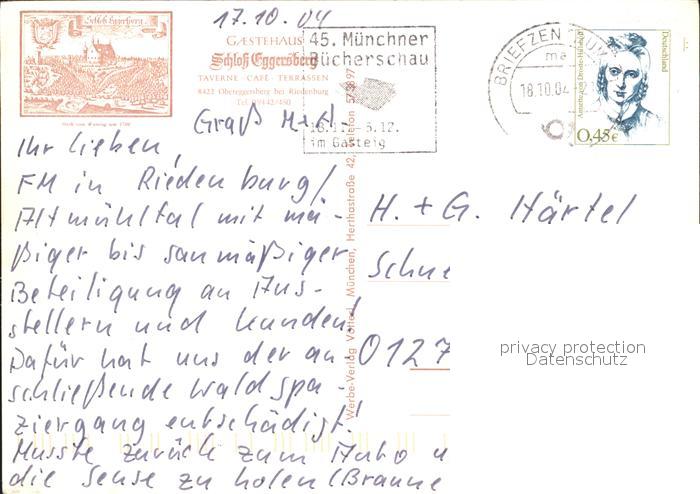 17.10.04
Schloß Eggerßberg
GÆSTEHAUS
Schloß Eggersberg
TAVERNE - CAFÉ - TERRASSEN
8422 Obereggersberg bei Riedenburg
Tel. 09442/450
45. Münchner
Bücherschau
5.12.
im Gasteig
BRIEFZEN
18.10.04
Annette von Droste-Hülshoff
Deutschland
0,45€
Gruß M.+A.
Ihr Lieben,
FM in Riedenburg/
Altmühltal mit mä-
ßiger bis saumäßiger
Beteiligung an Aus-
stellern und Kunden!
Dafür hat uns der an-
schließende Waldspa-
ziergang entschädigt!
Musste zurück zum Auto u
die Sense zu holen (Braune
H. + G. Härtel
Schne
0127
Werbe-Verlag München, Herthastraße 42, Telefon 57 38 97
privacy protection
Datenschutz